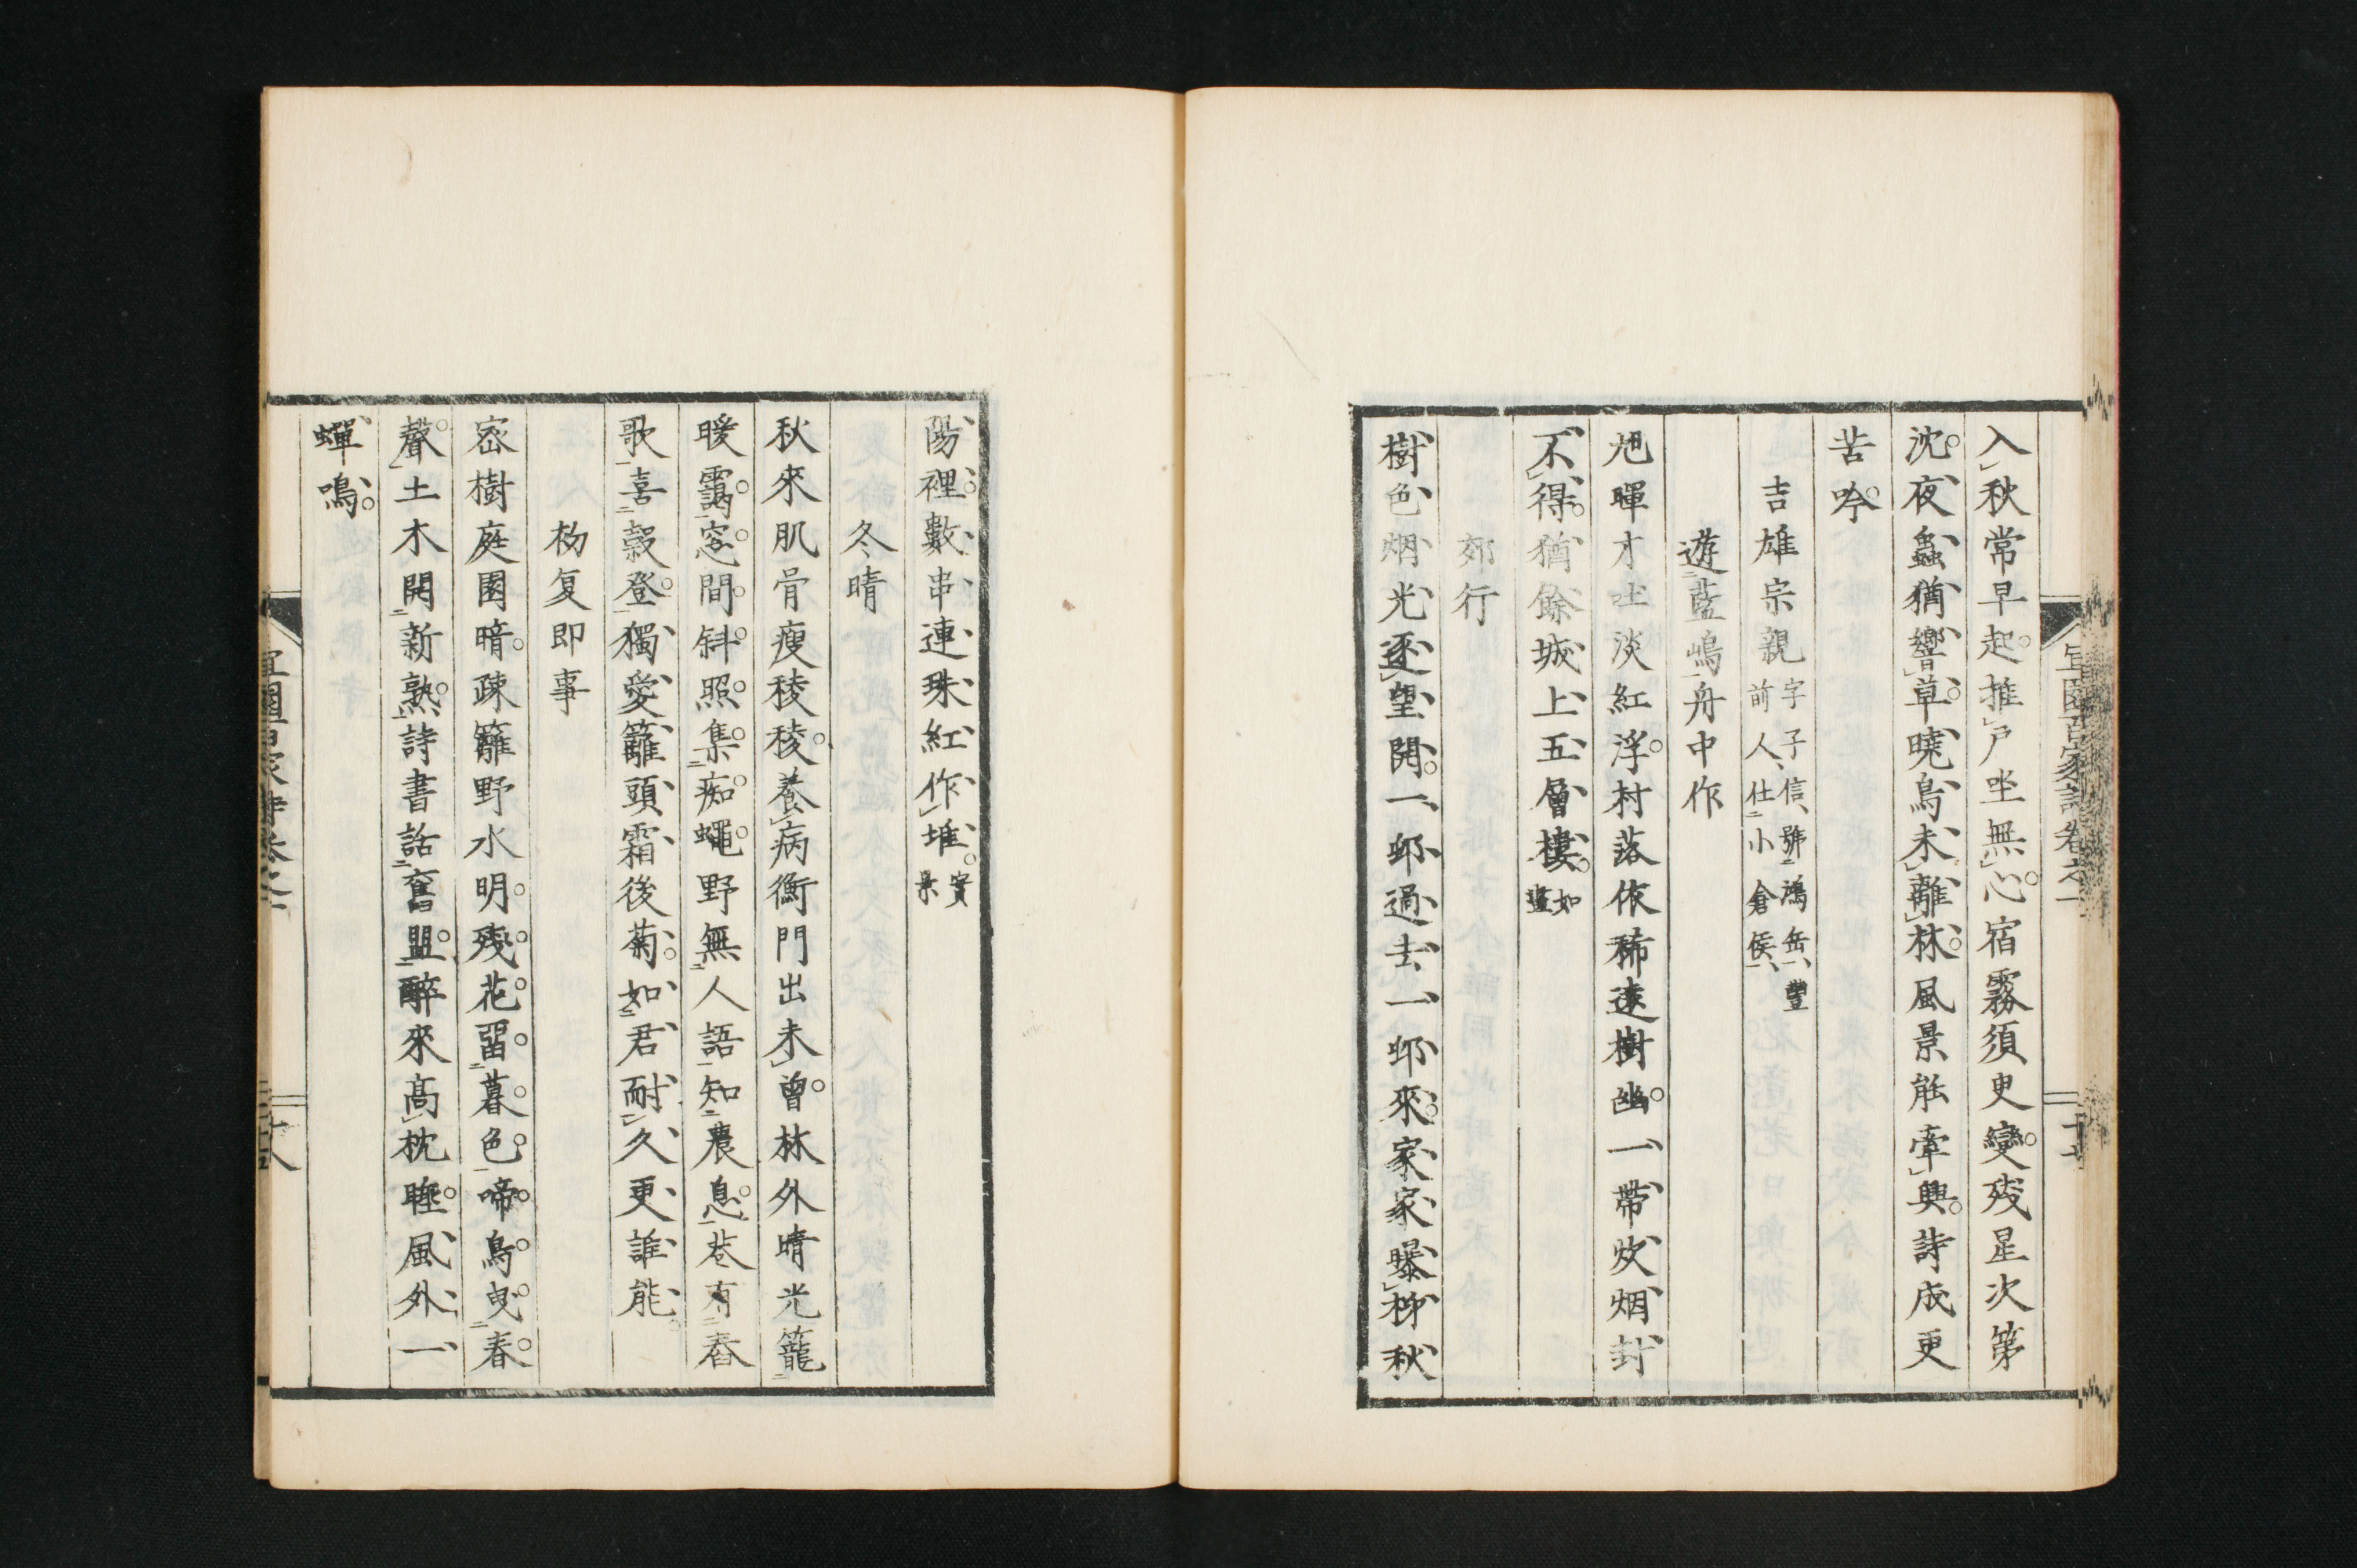 入秋常早起推戸坐無心宿霧須臾變殘星次第
沈夜蟲猶響草曉鳥未離林風景能牽興詩成更
苦吟
吉雄宗親字子信號鴻岳豐
前人仕小倉侯
遊藍嶋舟中作
旭暉才吐淡紅浮村落依稀遠樹幽一帶炊烟封
不得猶餘城上五層樓如
畫
郊行
樹色烟光逐望開一邨過去一邨來家家曝柹秋
陽裡數串連珠紅作堆實
景
冬晴
秋來肌骨瘦稜稜養病衡門出未曾林外晴光籠
暖靄窓間斜照集痴蠅野無人語知農息巷有舂
歌喜穀登獨愛籬頭霜後菊如君耐久更誰能
初夏即事
密樹庭園暗疎籬野水明殘花留暮色啼鳥曳春
聲土木開新熟詩書話舊盟醉來高枕睡風外一
蟬鳴